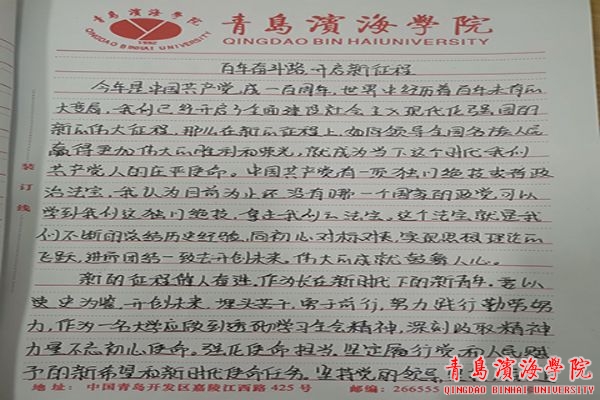 青島濱海學院
QINGDAO BINHAI UNIVERSITY
青島濱海學院
QINGDAO BIN HAIUNIVERSITY
百年奋斗路,开启新征程
今年是中国共产党成一百周年,世界中经历着百年未有的
大变局,我们已经开启了全面建设社会主义现代化强国的
新的伟大征程,那么在新的征程上,如何领导全国各族人民
赢得更加伟大的胜利和荣光,就成为当下这个时代我们
共产党人的庄严使命。中国共产党有一项独门绝技或者政
治法宝,我认为目前为止还没有哪一个国家的政党可以
学到我们这独门绝技,拿走我们的法宝。这个法宝就是我
们不断的总结历史经验,向初心对标对表,实现思想理论的
飞跃,进而团结一致去开创未来。伟大的成就鼓舞人心。
新的征程催人奋进,作为长在新时代下的新青年,要以
史为鉴,开创未来,埋头苦干,勇于前行,努力践行勤劳努
力,作为一名大学应段到透彻学习全会精神,深刻汲取精神
力量不忘初心使命。强化使命担当,坚定履行党和人民赋
予的新希望和新时代使命任务。坚持党的领导,
装订线
地址:中国青岛开发区嘉陵江西路425号
邮编:266555
青島濱海學院
QINGDAO BINHAI UNIVERSITY